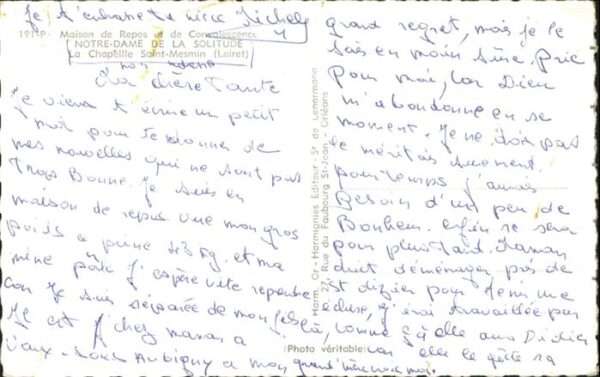 Je t'embrasse ta nièce Michel
19119 - Maison de Repos et de Convalescence
NOTRE-DAME DE LA SOLITUDE
La Chapelle Saint-Mesmin (Loiret)
Ma chère Tante
Je viens t écrire un petit
mot pour te donner de
mes nouvelles qui ne sont pas
trop Bonne. Je suis en
maison de repos vue mon gros
poids a peine 43 Kg. et ma
mine pale j'espère vite reprendre
con Je suis séparée de mon
Il est chez maman a
Vaux-sous Aubigny a mon grand
grand regret, mais je le
sais en main sûre. Prie
pour moi, car Dieu
m'abandonne en se
moment. Je ne dois pas
le méritais surement.
pourtemps j'aurais
Besoin d'un peu de
Bonheur. enfin se sera
pour plus tard. Maman
doit déménager près de
St dizier pour tenir une
écluse, j'irai travailler
comme ça elle aura Didier
car elle le gâte
Harm. Cr-Harmonies Editeur - St de Lenormann
27, Rue du Faubourg St-Jean - Orléans
(Photo véritable)